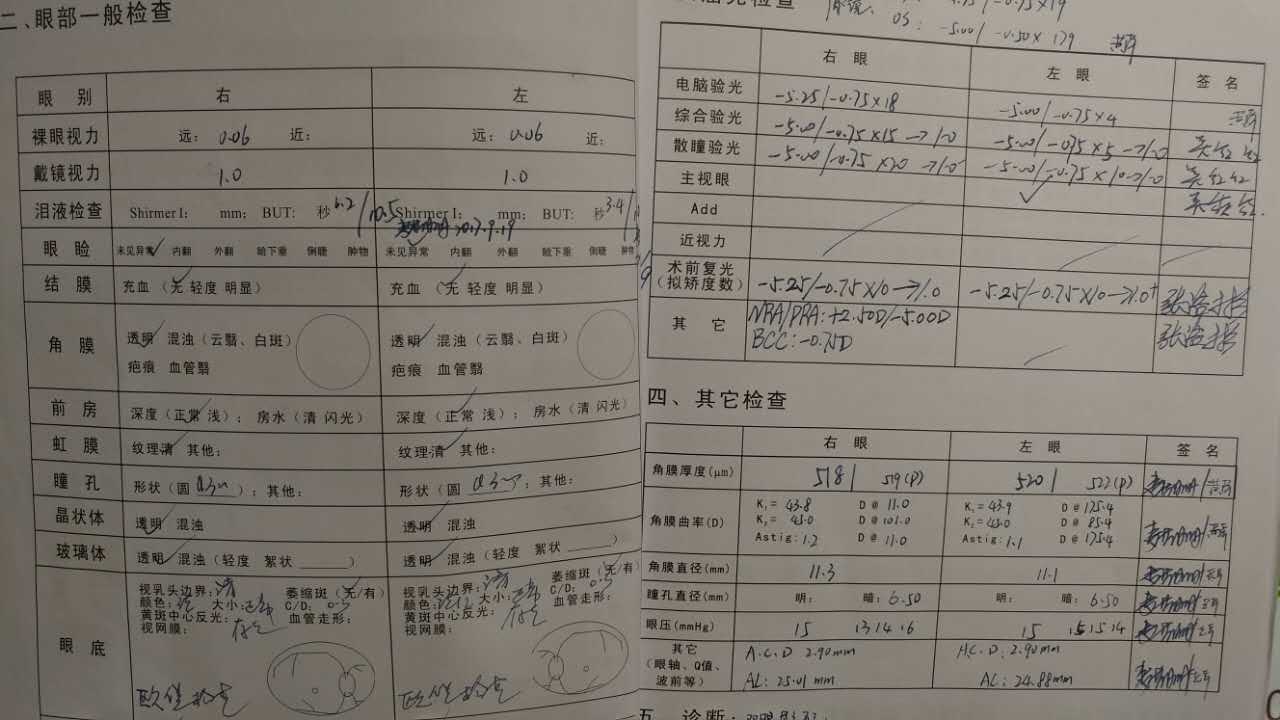 二、眼部一般检查
眼 别 右 左
裸眼视力 远: 0.06 近: 远: 0.06 近:
戴镜视力 1.0 1.0
泪液检查 Shirmer I: mm; BUT: 秒 6.2 / 10.5 Shirmer I: mm; BUT: 秒 3.4 /
2017.9.19
眼 睑 未见异常 内翻 外翻 睑下垂 倒睫 肿物 未见异常 内翻 外翻 睑下垂 倒睫 肿物
结 膜 充血 (无 轻度 明显) 充血 (无 轻度 明显)
角 膜 透明 混浊 (云翳、白斑) 透明 混浊 (云翳、白斑)
疤痕 血管翳 疤痕 血管翳
前 房 深度 (正常 浅); 房水 (清 闪光) 深度 (正常 浅); 房水 (清 闪光)
虹 膜 纹理:清 其他: 纹理:清 其他:
瞳 孔 形状 (圆 ); 其他: 形状 (圆 ); 其他:
晶状体 透明 混浊 透明 混浊
玻璃体 透明 混浊 (轻度 絮状 ______) 透明 混浊 (轻度 絮状 ______)
眼 底
视乳头边界: 清 萎缩斑 (无/有) 视乳头边界: 清 萎缩斑 (无/有)
颜色: 大小: 正常 C/D: 0.5 颜色: 大小: 正常 C/D: 0.5
黄斑中心反光: 存在 血管走形: 黄斑中心反光: 存在 血管走形:
视网膜: 视网膜:
OS: -5.00/-0.50×179
右 眼 左 眼 签 名
电脑验光 -5.25/-0.75×18 -5.00/-0.75×4
综合验光 -5.00/-0.75×15→1.0 -5.00/-0.75×5→1.0
散瞳验光 -5.00/-0.75×20→1.0 -5.00/-0.75×10→1.0
主视眼
Add
近视力
术前复光
(拟矫度数) -5.25/-0.75×10→1.0 -5.25/-0.75×10→1.0+
其 它 NRA/PRA:+2.50D/-5.00D
BCC:-0.75D
四、其它检查
右 眼 左 眼 签 名
角膜厚度(μm) 518 519(P) 520 522(P)
角膜曲率(D)
K₁= 43.8 D@ 11.0 K₁= 43.9 D@ 175.4
K₂= 45.0 D@ 101.0 K₂= 45.0 D@ 85.4
Astig: 1.2 D@ 11.0 Astig: 1.1 D@ 175.4
角膜直径(mm) 11.3 11.1
瞳孔直径(mm) 明: 暗: 6.50 明: 暗: 6.50
眼压(mmHg) 15 13 14 16 15 15 15 14
其它
(眼轴、Q值、
波前等)
A.C.D 2.90mm A.C.D: 2.90mm
AL: 25.01 mm AL: 24.88mm
五、诊断: